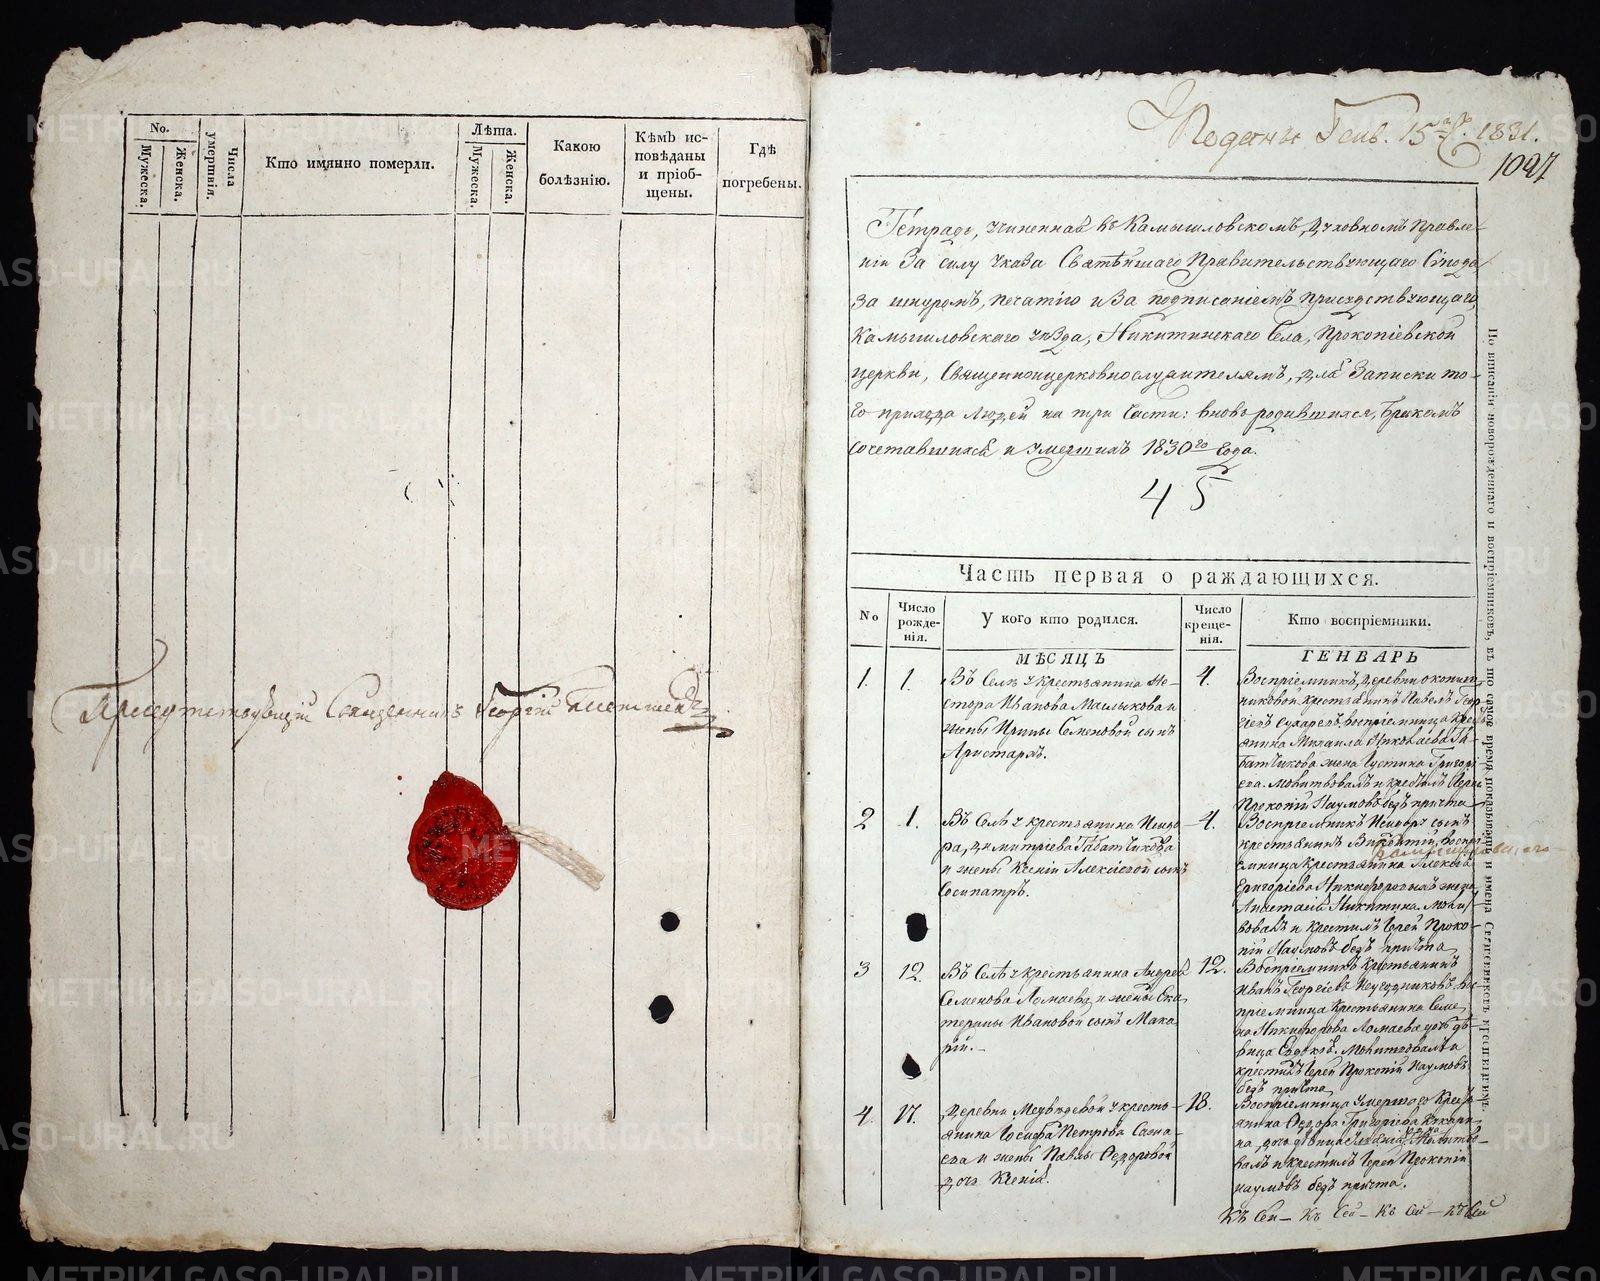 No.
Мужеска.
Женска.
Числа умертвія.
Кто имянно померли.
Лѣта.
Мужеска.
Женска.
Какою
болѣзнію.
Кѣмъ ис-
повѣданы
и пріоб-
щены.
Гдѣ
погребены.
Присутствующій Священникъ Георгій
Поданы Генв. 15 1831.
1027
Тетрадь, учиненная въ Камышловскомъ Духовномъ Правле-
ніи За силу Указа Святѣйшаго Правительствующаго Сѵнода
За шнуромъ, печатію и За подписаніемъ присудствующаго,
Камышловскаго уѣзда, Никитинскаго Села, Прокопіевской
церкви, Священноцерковнослужителямъ, для Записки то-
го прихода людей на три Части: вновь родившихся, бракомъ
сочетавшихся и умершихъ 1830го Года.
45
Часть первая о раждающихся.
No
Число
рожде-
нія.
У кого кто родился.
Число
креще-
нія.
Кто воспріемники.
МѢСЯЦЪ
ГЕНВАРЬ
1.
1.
Въ Селѣ у крестьянина Не-
стора Иванова Маслыкова и
жены Ирины Семеновой сынъ
Аристархъ.
4.
Воспріемникъ, деревни
крестьянинъ Павелъ Геор-
гіевъ Сухаревъ, воспріемница крест-
янина Михаила Николаева Га-
батчикова жена Густина Григорі-
ева. Молитвовалъ и крестилъ Іерей
Прокопій Наумовъ безъ причта
2
1.
Въ Селѣ у крестьянина Исидо-
ра, Димитріева Габатчикова
и жены Ксеніи Алексіевой сынъ
Сосипатръ.
4.
Воспріемникъ Исидора сынъ
крестьянинъ Викентій, воспрі-
емница крестьянина Алексія
Григоріева Никифоровыхъ жена
Анастасія Никитина. Молит-
вовалъ и крестилъ Іерей Проко-
пій Наумовъ безъ причта
3
12.
Въ Селѣ у крестьянина Андрея
Семенова Ломаева и жены Ека-
терины Ивановой сынъ Мака-
рій.
12.
Воспріемникъ крестьянинъ
Иванъ Георгіевъ вос-
пріемница крестьянина Семе-
на Никифорова Ломаева дочь дѣ-
вица Евдокія. Молитвовалъ и
крестилъ Іерей Прокопій Наумовъ
безъ причта
4.
17.
Деревни Медвѣдевой у кресть-
янина Іосифа Петрова
и жены Павлы Ѳедоровой
дочь Ксенія.
18.
Воспріемница умершаго крест-
янина Ѳедора Григоріева Кокари-
на, дочь дѣвица Молитво-
валъ и крестилъ Іерей Прокопій
Наумовъ безъ причта.
Къ Сей - Къ Сей - Къ Сей - Къ Сей
По вписаніи новорожденнаго и воспріемниковъ, въ то самое время показывать и имена Священниковъ крестившихъ.
METRIKI.GASO-URAL.RU